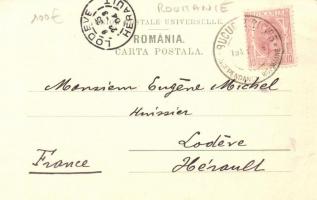 100€
ROUMANIE
TALE UNIVERSELLE.
ROMANIA.
CARTA POSTALA.
LODEVE
HERAULT
Monsieur Eugène Michel
Huissier
Lodève
France
Hérault